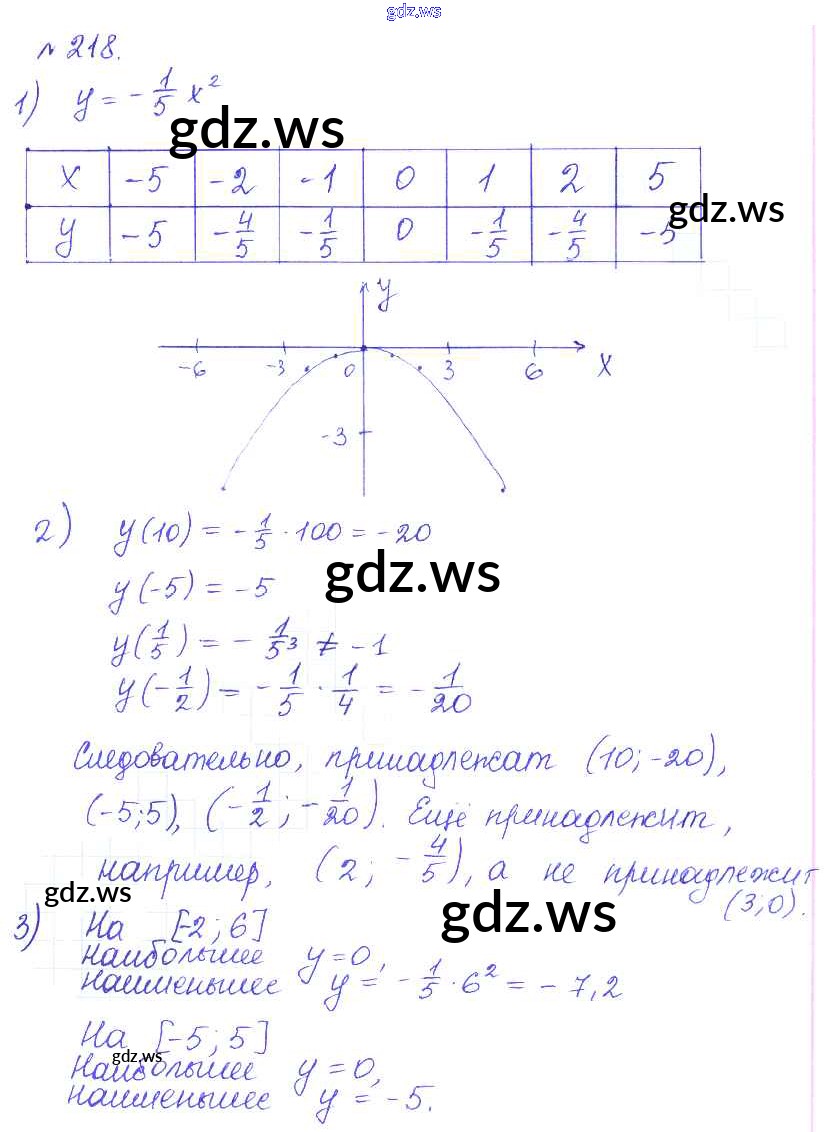 gdz.ws
№ 218.
1) y = -1/5 x²
gdz.ws
x -5 -2 -1 0 1 2 5
gdz.ws
y -5 -4/5 -1/5 0 -1/5 -4/5 -5
y
-6 -3 0 3 6 x
-3
2) y(10) = -1/5 · 100 = -20
gdz.ws
y(-5) = -5
y(1/5) = -1/5³ ≠ -1
y(-1/2) = -1/5 · 1/4 = -1/20
Следовательно, принадлежат (10; -20),
(-5;5), (-1/2; -1/20). Ещё принадлежит,
например, (2; -4/5), а не принадлежит
gdz.ws
gdz.ws
(3;0).
3) На [-2; 6]
наибольшее y = 0,
наименьшее y = -1/5 · 6² = -7,2
На [-5; 5]
gdz.ws
наибольшее y = 0,
наименьшее y = -5.